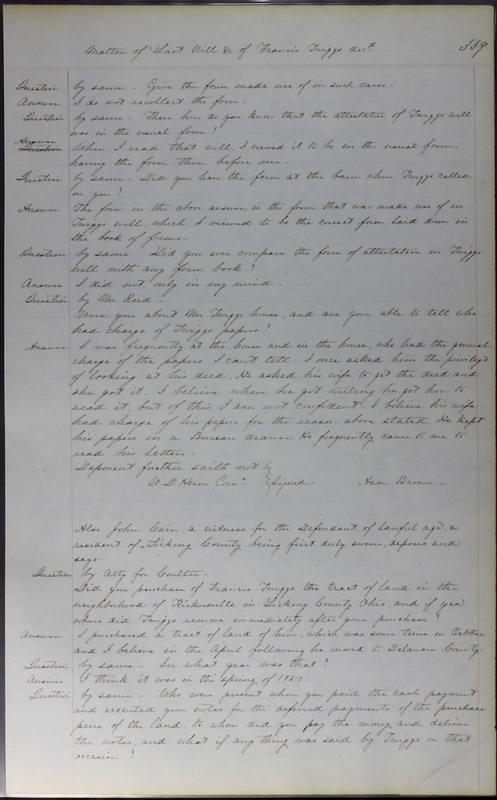 Matter of Last Will &c of Francis Twiggs decd 339
Question by same - Give the form made use of in such cases.
Answer I do not recollect the form.
Question by same - Then how do you know that the attestation of Twiggs will
was in the usual form?
Answer Question When I read that will, I viewed it to be in the usual form,
having the form then before me.
Question by same - Did you have the form at the barn when Twiggs called
on you?
Answer The form in the above answer, is the form that was made use of in
Twiggs will, which I viewed to be the correct form laid down in
the book of forms.
Question by same - Did you ever compare the form of attestation in Twiggs
will with any form book?
Answer I did not only in my mind.
Question by Mr Reid -
Were you about Mr Twiggs house, and are you able to tell who
had charge of Twiggs papers?
Answer I was frequently at the house and in the house, who had the general
charge of the papers I can't tell. I once asked him the privilege
of looking at his deed, He asked his wife to get the deed and
she got it. I believe when he got writing he got her to
read it, but of this I am not confident. I believe his wife
had charge of his papers for the reason above stated. He kept
his papers in a Bureau drawer, He frequently came to me to
read his letters.
Deponent further saith not
W. D. Heim Comr. Signed. Brown
Also John Cain, a witness for the Defendant of lawful age, a
resident of Licking County being first duly sworn, deposes and
says:
Question by Atty for Coulter -
Did you purchase of Francis Twiggs the tract of land in the
neighborhood of Kirkersville in Licking County Ohio, and if yea
where did Twiggs remove immediately after your purchase?
Answer I purchased a tract of land of him, which was some time in October
and I believe in the April following he moved to Delaware County.
Question by same - In what year was that?
Answer I think it was in the spring of 1850
Question by same - Who were present when you paid the cash payment
and executed your notes for the deferred payments of the purchase
price of the land, to whom did you pay the money and deliver
the notes, and what if any thing was said by Twiggs on that
occasion?